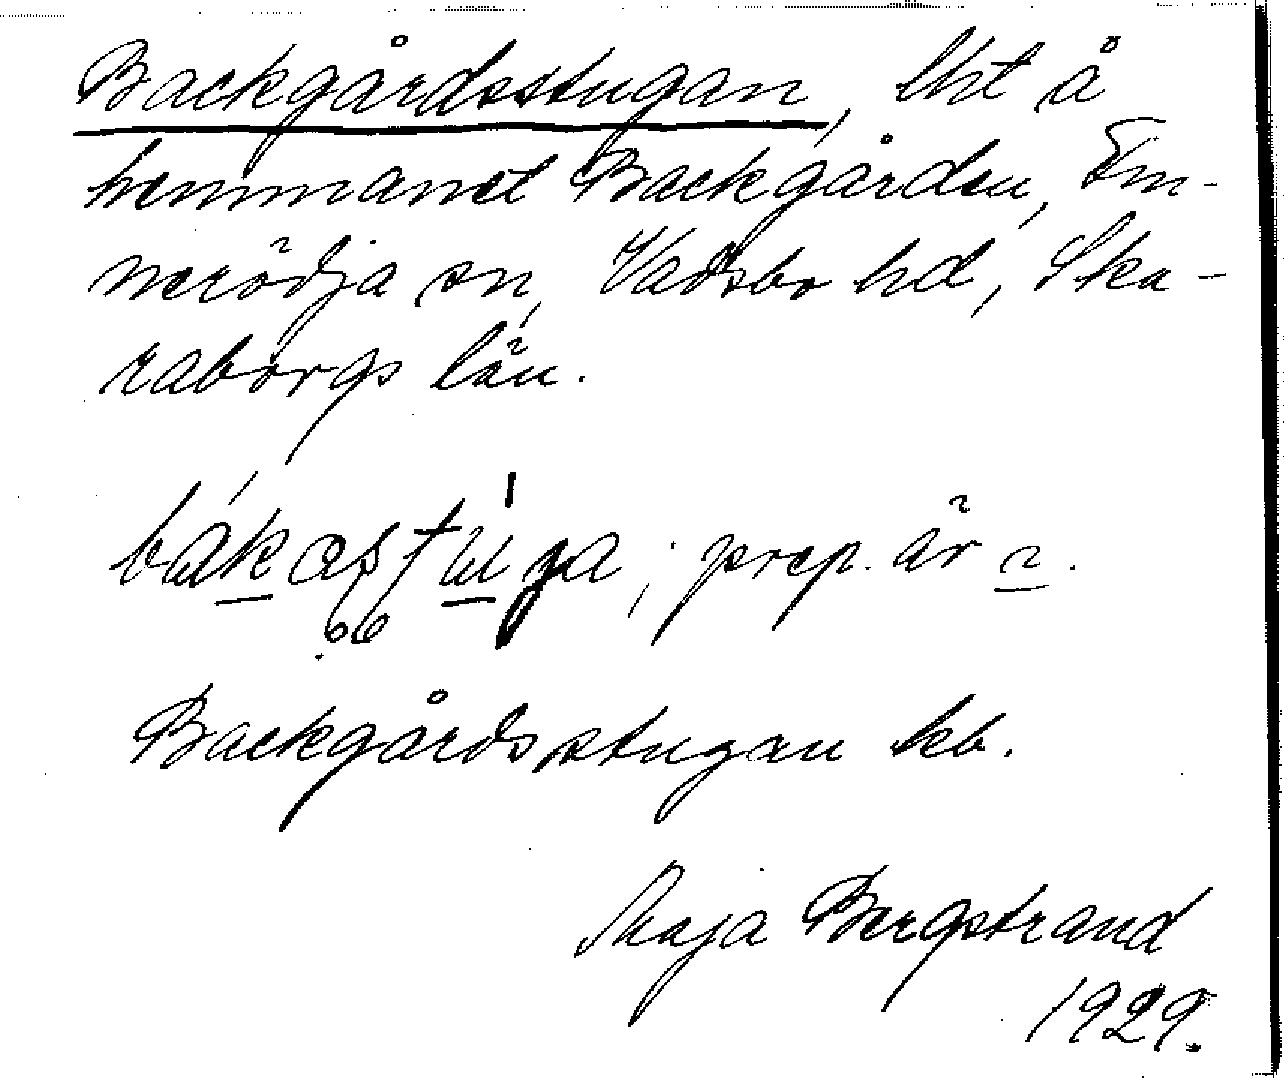 Backgårdsstugan, lht å
hemmanet Backgården, Em-
nerödja sn, Vadsbo hd, Ska-
raborgs län.
prep. är
Backgårdsstugan kb.
Maja Bergstrand
1929.